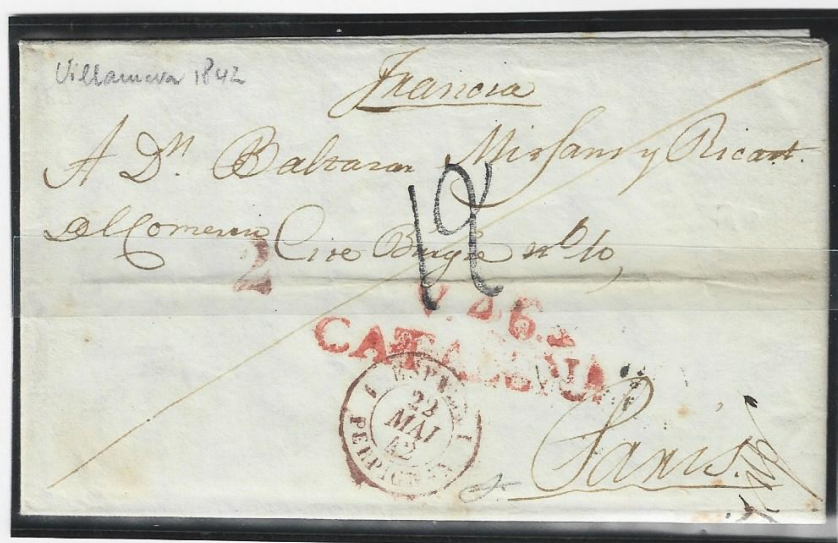 Villanueva 1842
Francia
A Dn. Baltasar Mirsans y Ricart.
Del Comercio Cire Bugie nº 10,
12
2
CATALUÑA
ESPAGNE
23
MAI
42
PERPIGNAN
Paris.